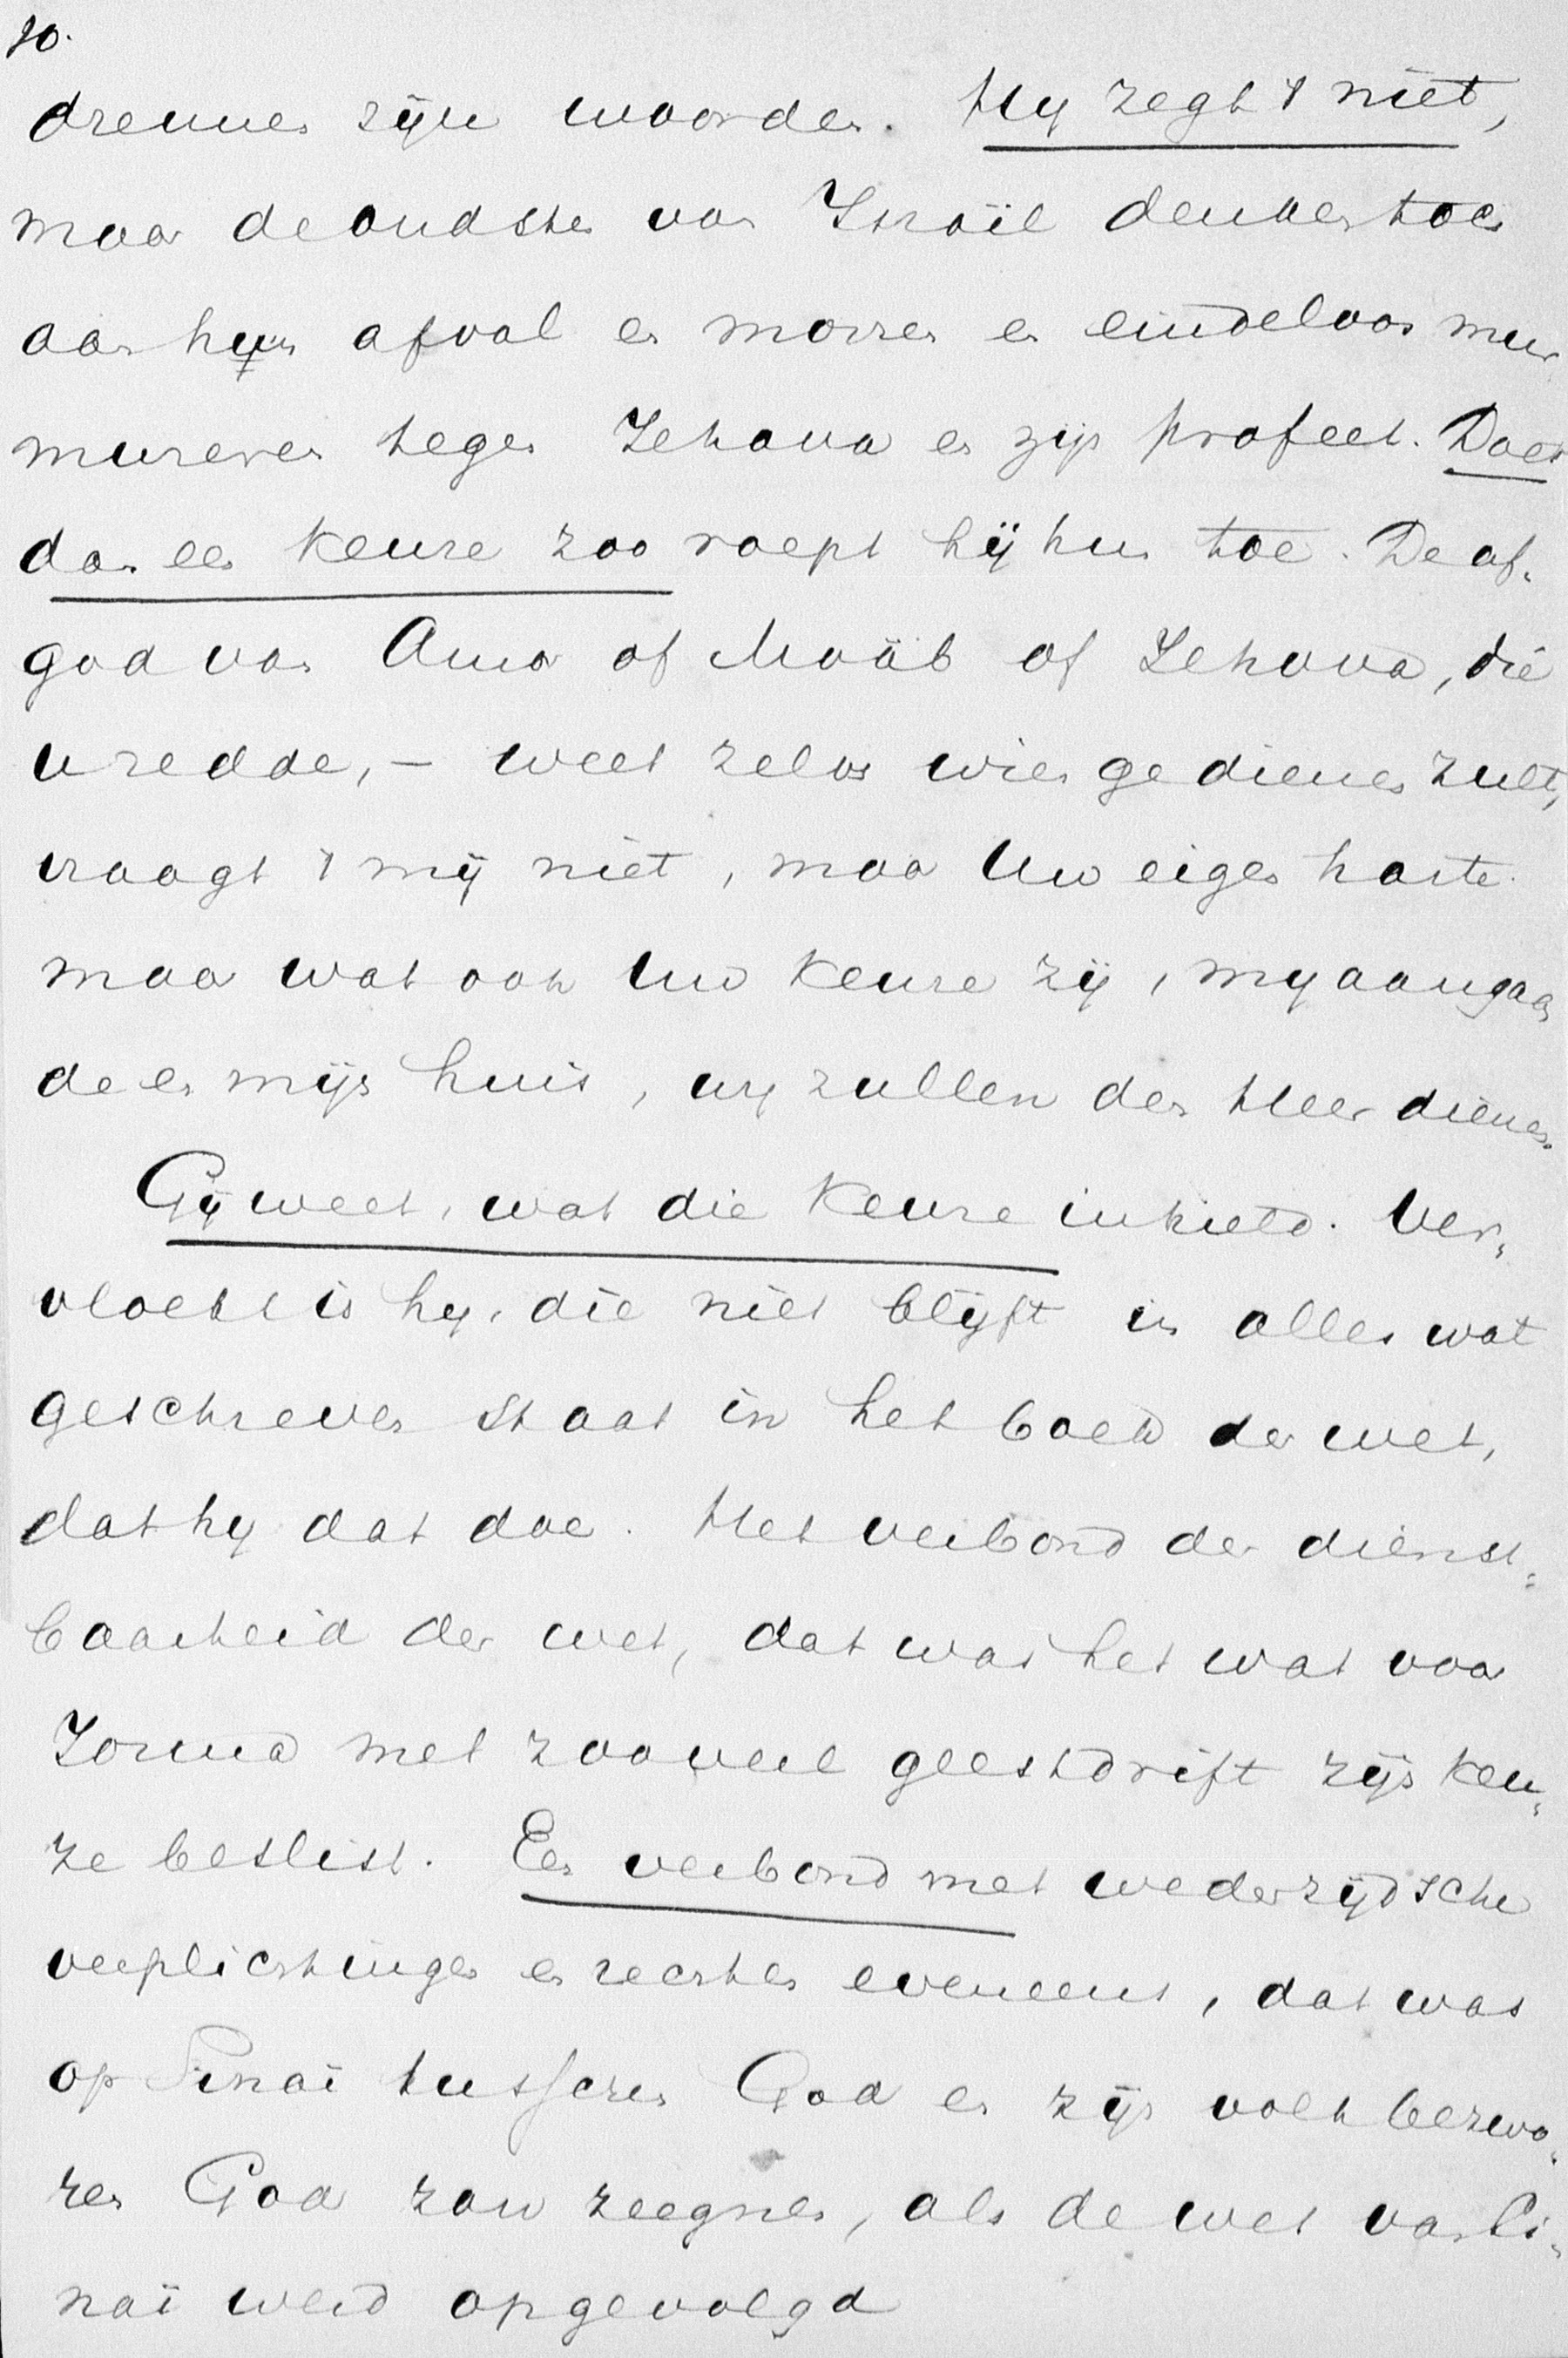 10.
dreunen zijn woorden. Hy zegt 't niet,
maar de oudsten van Israël denken toen
aan hun afval en morren en eindeloos mur
mureren tegen Jehova en zijn profeet. Doet
dan een keuze zoo roept hij hun toe. De af-
god van Amor of Moäb of Jehova, die
U redde, – weet zelve wien ge dienen zult,
vraagt 't mij niet, maar Uw eigen harte.
maar wat ook Uw keuze zij, my aangaan
de en mijn huis, wy zullen den Heer dienen.
Gij weet, wat die keuze inhield. Ver-
vloekt is hy, die niet blijft in alles wat
geschreven staat in het boek der wet,
dat hy dat doe. Het verbond der dienst-
baarheid der wet, dat was het wat voor
Jozua met zooveel geestdrift zijn keu-
ze beslist. Een verbond met wederzijdsche
verplichtingen en rechten eveneens, dat was
op Sinaï tusschen God en zijn volk bezwo-
ren God zou zeegnen, als de wet van Si-
naï werd opgevolgd